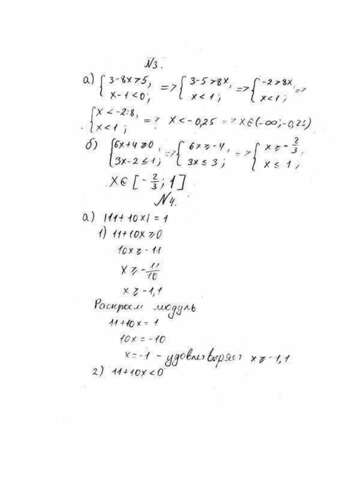 №3.
а) { 3-8x>5, x-1<0; => { 3-5>8x, x<1; => { -2>8x, x<1; =>
{ x<-2:8, x<1; => x<-0,25 => x∈(-∞;-0,25)
б) { 6x+4≥0, 3x-2≤1; => { 6x≥-4, 3x≤3; => { x≥-2/3, x≤1;
x∈[-2/3; 1]
№4.
а) |11+10x|=1
1) 11+10x≥0
10x≥-11
x≥-11/10
x≥-1,1
Раскроем модуль
11+10x=1
10x=-10
x=-1 - удовлетворяет x≥-1,1
2) 11+10x<0